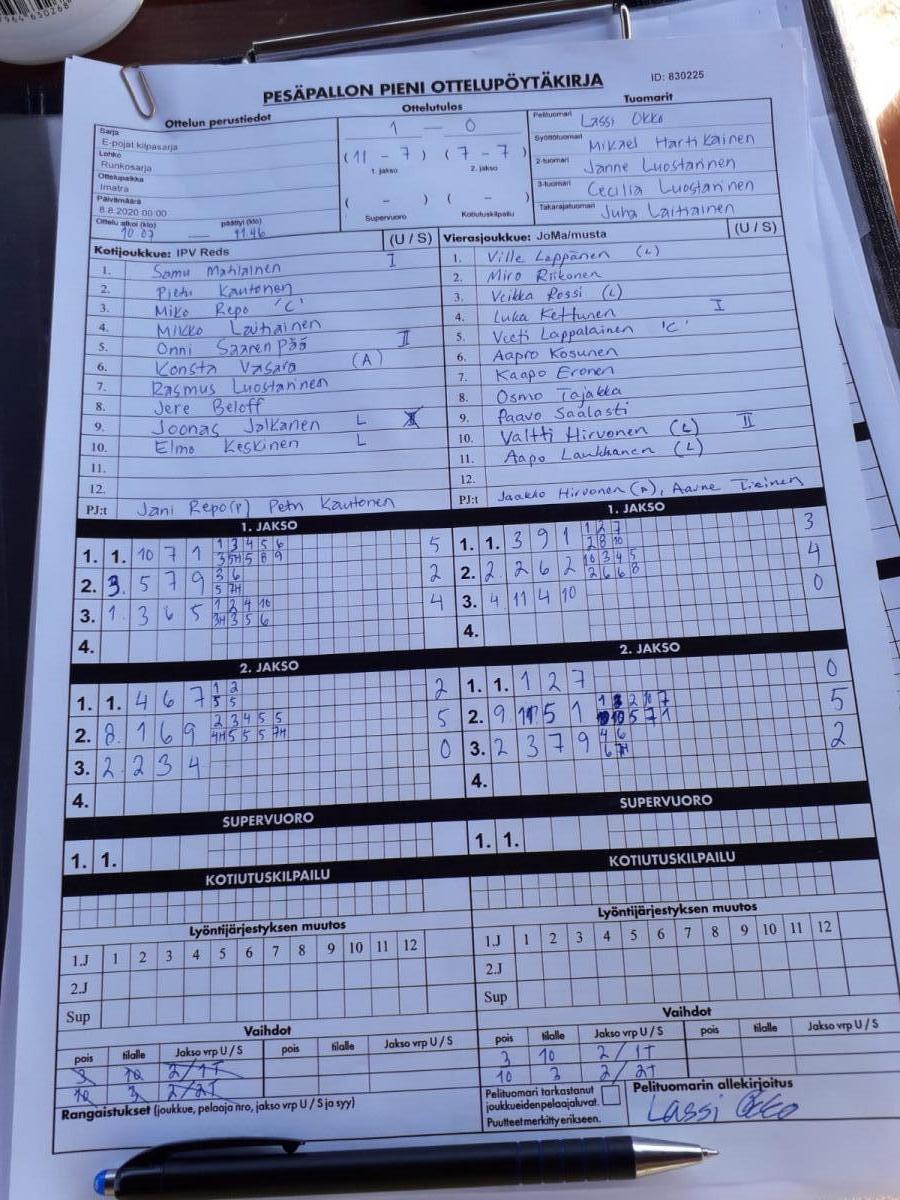 PESÄPALLON PIENI OTTELUPÖYTÄKIRJA
ID: 830225
Ottelun perustiedot
Sarja
E-pojat kilpasarja
Lohko
Runkosarja
Ottelupaikka
Imatra
Päivämäärä
8.8.2020 00:00
Ottelu alkoi (klo) päättyi (klo)
10.07 11.46
Ottelutulos
1 — 0
(11 - 7) (7 - 7)
1. jakso 2. jakso
( - ) ( - )
Supervuoro Kotiutuskilpailu
Tuomarit
Pelituomari Lassi Okko
Syöttötuomari Mikael Hartikainen
2-tuomari Janne Luostarinen
3-tuomari Cecilia Luostarinen
Takarajatuomari Juha Laitiainen
Kotijoukkue: IPV Reds (U / S)
1. Samu Mahlainen I
2. Pietri Kautonen
3. Miko Repo 'C'
4. Mikko Laitiainen
5. Onni Saarenpää II
6. Konsta Vasara (A)
7. Rasmus Luostarinen
8. Jere Beloff
9. Joonas Jalkanen L
10. Elmo Keskinen L
11.
12.
PJ:t Jani Repo(P) Petri Kautonen
Vierasjoukkue: JoMa/musta (U / S)
1. Ville Leppänen (L)
2. Miro Riikonen
3. Veikka Rossi (L)
4. Luka Kettunen I
5. Veeti Lappalainen 'C'
6. Aapro Kosunen
7. Kaapo Eronen
8. Osmo Tajakka
9. Paavo Saalasti
10. Valtti Hirvonen (L) II
11. Aapo Laukkanen (L)
12.
PJ:t Jaakko Hirvonen (P), Aarne Tieinen
1. JAKSO
1. 1. 10 7 1 1 3 4 5 6 5
3 5H 5 8 9
2. 3. 5 7 9 3 6 2
5 7H
3. 1. 3 6 5 1 2 4 10 4
3H 3 5 6
4.
1. JAKSO
1. 1. 3 9 1 1 2 7 3
2 8 10
2. 2. 2 6 2 10 3 4 5 4
2 6 6 8
3. 4 11 4 10 0
4.
2. JAKSO
1. 1. 4 6 7 1 2 2
5 5
2. 8. 1 6 9 2 3 4 5 5 5
4H 5 5 5 7H
3. 2. 2 3 4 0
4.
2. JAKSO
1. 1. 1 2 7 0
2. 9. 11 5 1 5
10 5 7 1
3. 2 3 7 9 4 6 2
6 7H
4.
SUPERVUORO
1. 1.
SUPERVUORO
1. 1.
KOTIUTUSKILPAILU
KOTIUTUSKILPAILU
Lyöntijärjestyksen muutos
1.J 1 2 3 4 5 6 7 8 9 10 11 12
2.J
Sup
Lyöntijärjestyksen muutos
1.J 1 2 3 4 5 6 7 8 9 10 11 12
2.J
Sup
Vaihdot
pois tilalle Jakso vrp U / S pois tilalle Jakso vrp U / S
3 10 2/1T
10 3 2/2T
Vaihdot
pois tilalle Jakso vrp U / S pois tilalle Jakso vrp U / S
3 10 2/1T
10 3 2/2T
Rangaistukset (joukkue, pelaaja nro, jakso vrp U / S ja syy)
Pelituomari tarkastanut
joukkueiden pelaajaluvat.
Puutteet merkitty erikseen.
Pelituomarin allekirjoitus
Lassi Okko